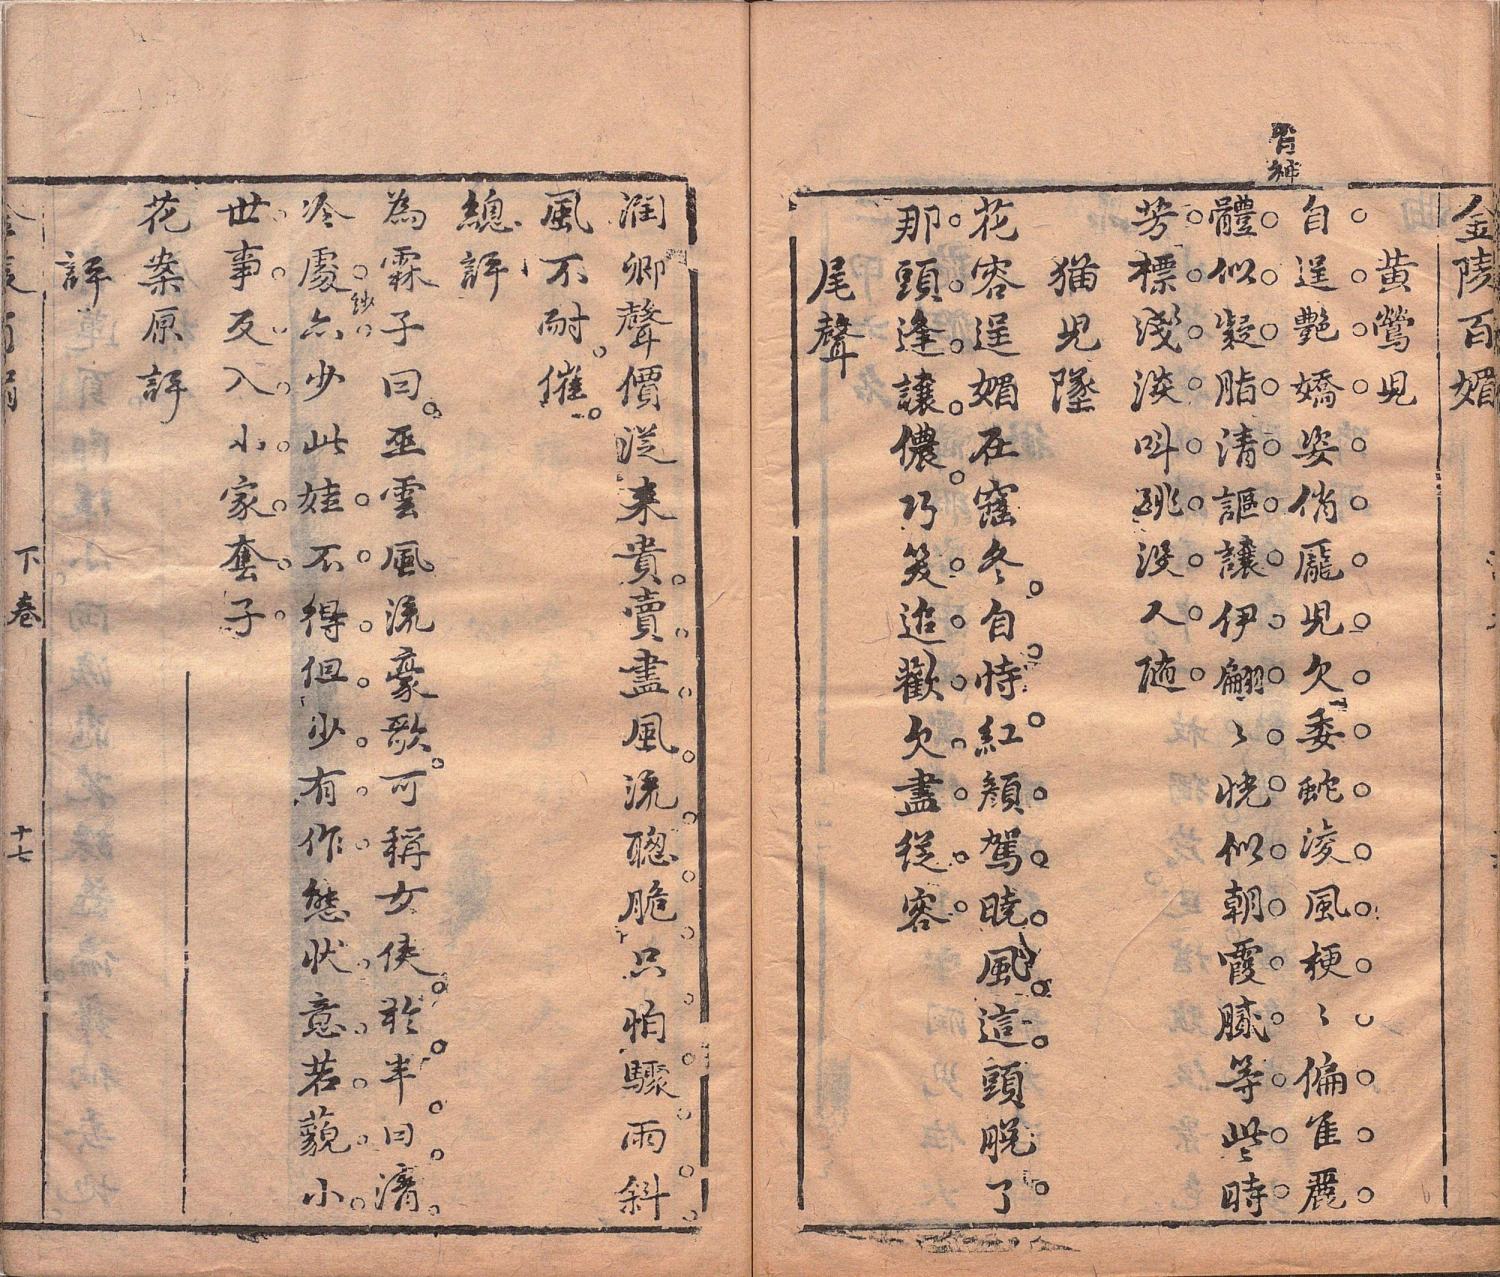 金陵百媚
黃鶯兒
自逞艷嬌姿俏龐兒欠委蛇淩風梗〻偏隹麗
體似凝脂清謳讓伊翩〻恍似朝霞膩等些時
芳標淺淡叫跳没人随
猫兒墜
花容逞媚在窪冬自恃紅顏駕曉風這頭脫了
那頭逢讓儂巧笑追歡欠盡從容
尾聲
润卿聲價従来貴賣盡風流聰脆只怕驟雨斜
風不耐催
總評
為霖子曰巫雲風流豪歌可稱女俠於半日濟
冷處亦少此娃不得但少有作態狀意若藐小
妙
世事反入小家套子
花案原評
評
下卷
十七